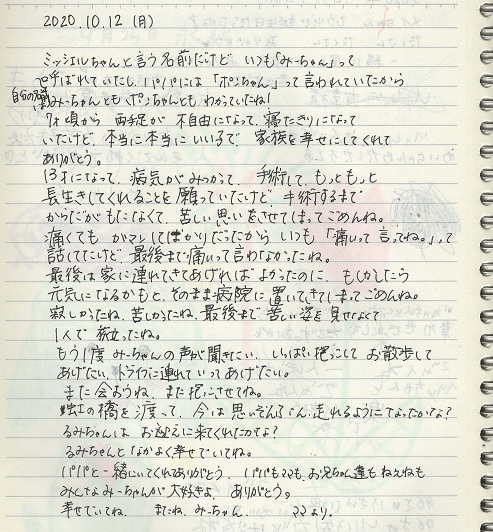 2020.10.12 (月)
ミッシェルちゃんと言う名前だけど いつも「みーちゃん」って
呼ばれていたし、パパには「ポンちゃん」って言われていたから
自分の名前はみーちゃんともポンちゃんとも、わかっていたね!
7才頃から 両手足が 不自由になって、寝たきりになって
いたけど、本当に本当にいい子で 家族を幸せにしてくれて
ありがとう。
13才になって、病気がみつかって、手術して、もっともっと
長生きしてくれることを願っていたけど、手術するまで
からだがもたなくて、苦しい思いをさせてしまってごめんね。
痛くても ガマンしてばかりだったから いつも「痛いって言ってね。」って
話してたけど、最後まで痛いって言わなかったね。
最後は家に連れてきてあげればよかったのに、もしかしたら
元気になるかもと、そのまま病院に置いてきてしまってごめんね。
寂しかったね、苦しかったね、最後まで苦しい姿を見せなくて
1人で 旅立ったね。
もう1度 みーちゃんの声が聞きたい、いっぱい抱っこして お散歩して
あげたい、ドライブに連れていってあげたい。
また会おうね、また抱っこさせてね。
虹の橋を渡って、今は思いぞんぶん、走れるようになったかな?
るみちゃんは お迎えに来てくれたかな?
るみちゃんとなかよく幸せでいてね。
パパと一緒にいてくれてありがとう、パパもママも、お兄ちゃん達もねぇねも
みんなみーちゃんが大好きよ、ありがとう。
幸せでいてね、 またね、みーちゃん、 ママより。